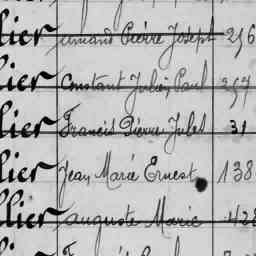 lier Armand Pierre Joseph 256
lier Constant Julien Paul 357
lier Francis Pierre Jules 31
lier Jean Marie Ernest 138
llier Auguste Marie 428